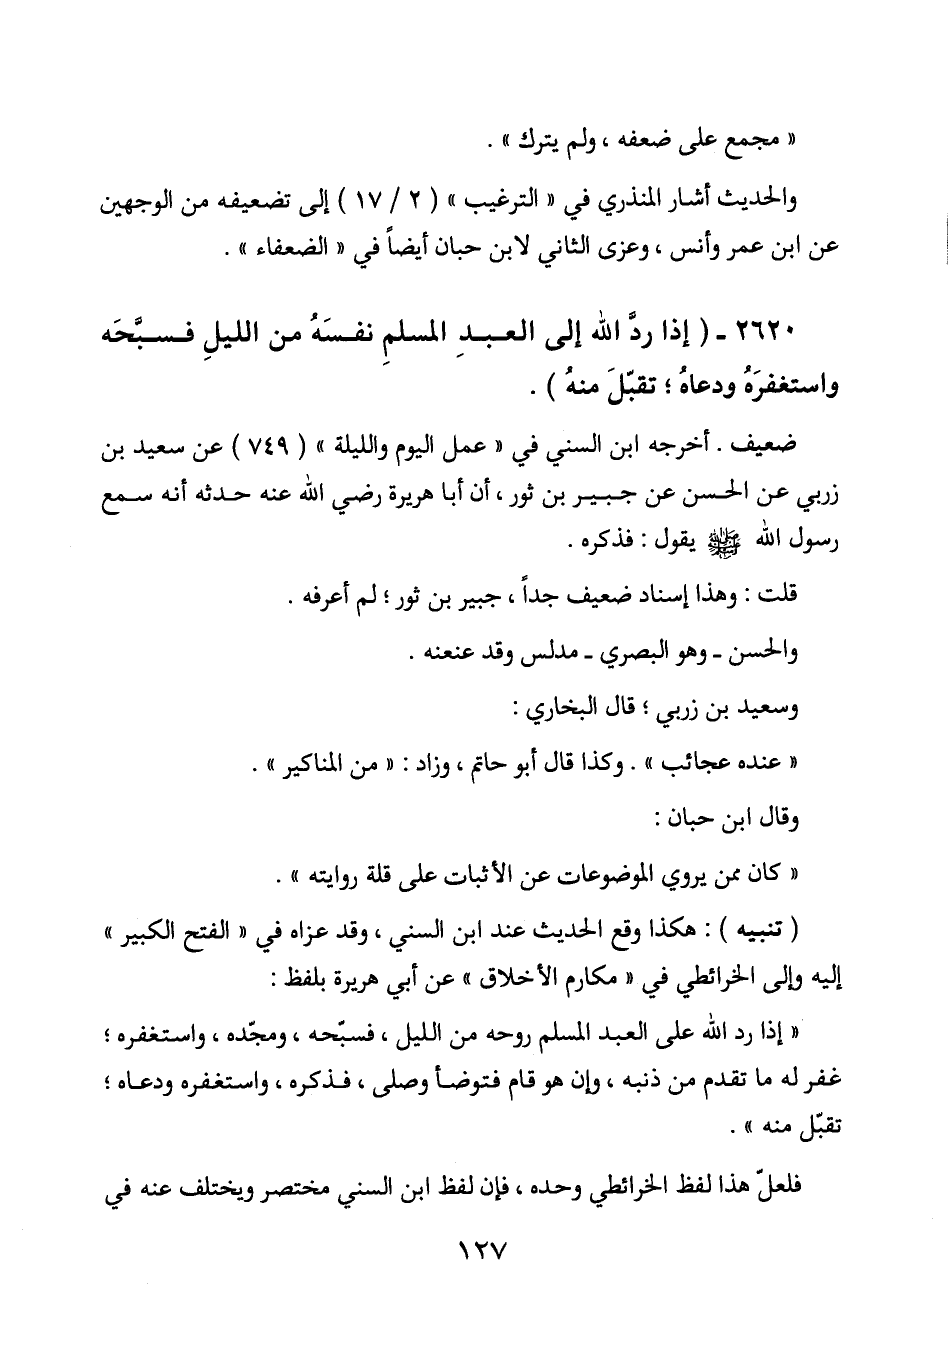 « مجمع على ضعفه ، ولم يترك » .
والحديث أشار المنذري في « الترغيب » ( ٢ / ١٧ ) إلى تضعيفه من الوجهين
عن ابن عمر وأنس ، وعزى الثاني لابن حبان أيضاً في « الضعفاء » .
٢٦٢٠ ـ ( إذا ردَّ الله إلى العـبـدِ المسلمِ نفـسَهُ من الليلِ فـسـبَّحَه
واستغفرَهُ ودعاهُ ؛ تقبّلَ منهُ ) .
ضعيف . أخرجه ابن السني في « عمل اليوم والليلة » ( ٧٤٩ ) عن سعيد بن
زربي عن الحسن عن جبير بن ثور ، أن أبا هريرة رضي الله عنه حدثه أنه سمع
رسول الله ﷺ يقول : فذكره .
قلت : وهذا إسناد ضعيف جداً ، جبير بن ثور ؛ لم أعرفه .
والحسن ـ وهو البصري ـ مدلس وقد عنعنه .
وسعيد بن زربي ؛ قال البخاري :
« عنده عجائب » . وكذا قال أبو حاتم ، وزاد : « من المناكير » .
وقال ابن حبان :
« كان ممن يروي الموضوعات عن الأثبات على قلة روايته » .
( تنبيه ) : هكذا وقع الحديث عند ابن السني ، وقد عزاه في « الفتح الكبير »
إليه وإلى الخرائطي في « مكارم الأخلاق » عن أبي هريرة بلفظ :
« إذا رد الله على العبد المسلم روحه من الليل ، فسبّحه ، ومجّده ، واستغفره ؛
غفر له ما تقدم من ذنبه ، وإن هو قام فتوضأ وصلى ، فذكره ، واستغفره ودعاه ؛
تقبّل منه » .
فلعلّ هذا لفظ الخرائطي وحده ، فإن لفظ ابن السني مختصر ويختلف عنه في
١٢٧